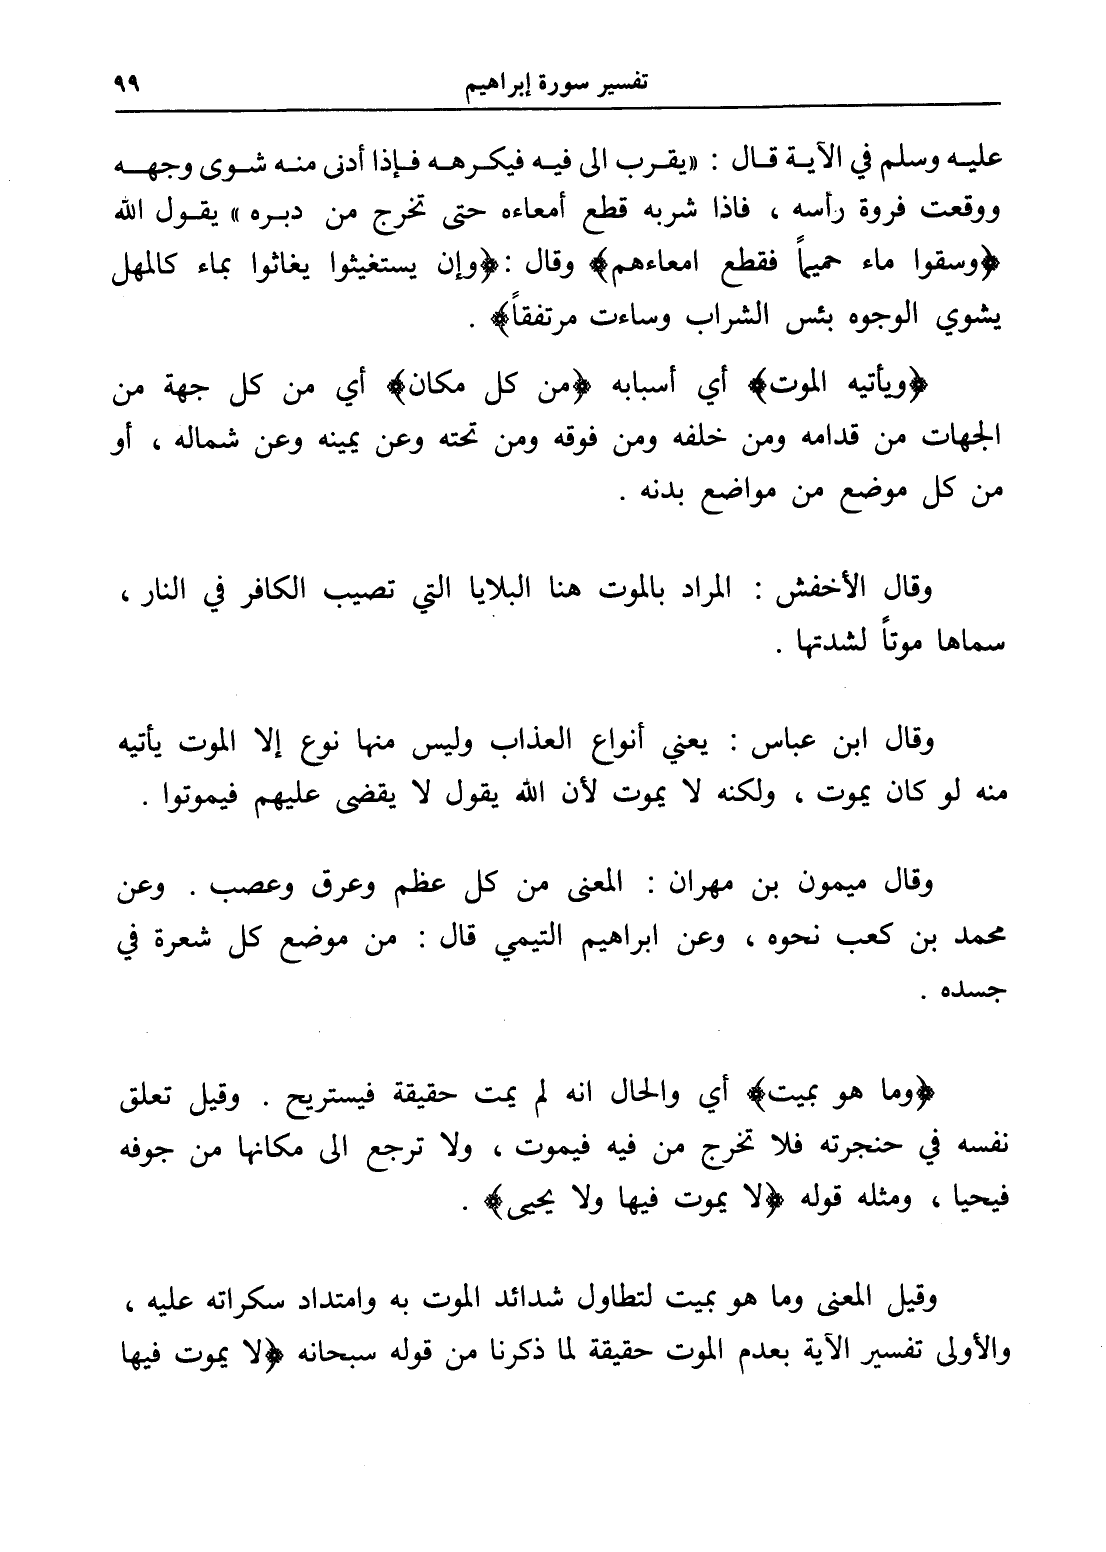 تفسير سورة إبراهيم ٩٩
عليه وسلم في الآية قال : «يقرب الى فيه فيكرهه فإذا أدنى منه شوى وجهه
ووقعت فروة رأسه ، فاذا شربه قطع أمعاءه حتى تخرج من دبره » يقول الله
﴿وسقوا ماء حميماً فقطع امعاءهم﴾ وقال : ﴿وإن يستغيثوا يغاثوا بماء كالمهل
يشوي الوجوه بئس الشراب وساءت مرتفقاً﴾ .
﴿ويأتيه الموت﴾ أي أسبابه ﴿من كل مكان﴾ أي من كل جهة من
الجهات من قدامه ومن خلفه ومن فوقه ومن تحته وعن يمينه وعن شماله ، أو
من كل موضع من مواضع بدنه .
وقال الأخفش : المراد بالموت هنا البلايا التي تصيب الكافر في النار ،
سماها موتاً لشدتها .
وقال ابن عباس : يعني أنواع العذاب وليس منها نوع إلا الموت يأتيه
منه لو كان يموت ، ولكنه لا يموت لأن الله يقول لا يقضى عليهم فيموتوا .
وقال ميمون بن مهران : المعنى من كل عظم وعرق وعصب . وعن
محمد بن كعب نحوه ، وعن ابراهيم التيمي قال : من موضع كل شعرة في
جسده .
﴿وما هو بميت﴾ أي والحال انه لم يمت حقيقة فيستريح . وقيل تعلق
نفسه في حنجرته فلا تخرج من فيه فيموت ، ولا ترجع الى مكانها من جوفه
فيحيا ، ومثله قوله ﴿لا يموت فيها ولا يحيى﴾ .
وقيل المعنى وما هو بميت لتطاول شدائد الموت به وامتداد سكراته عليه ،
والأولى تفسير الآية بعدم الموت حقيقة لما ذكرنا من قوله سبحانه ﴿لا يموت فيها